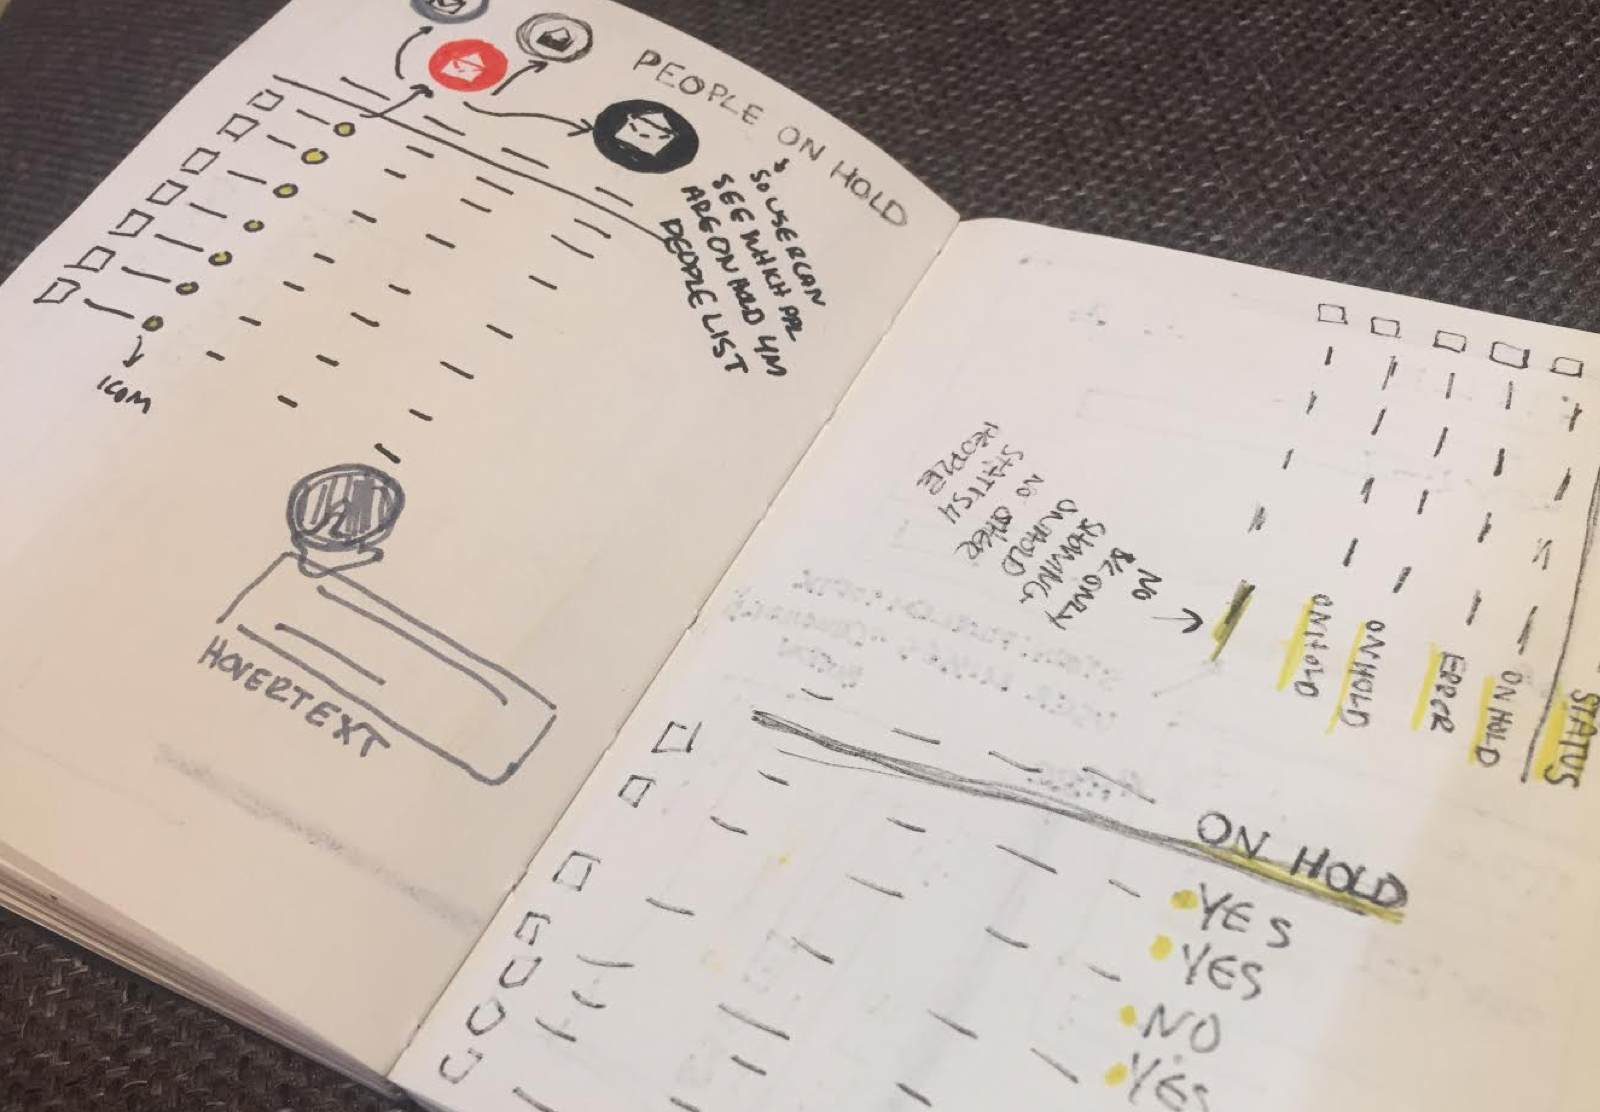 PEOPLE ON HOLD
SO USER CAN
SEE WHICH PPL
ARE ON HOLD 4M
PEOPLE LIST
ICON
HOVERTEXT
STATUS
ON HOLD
ERROR
ON HOLD
ON HOLD
NO
B/C ONLY
SHOWING
ON HOLD
NO OTHER
STATIS 4
PEOPLE
ON HOLD
YES
YES
NO
YES